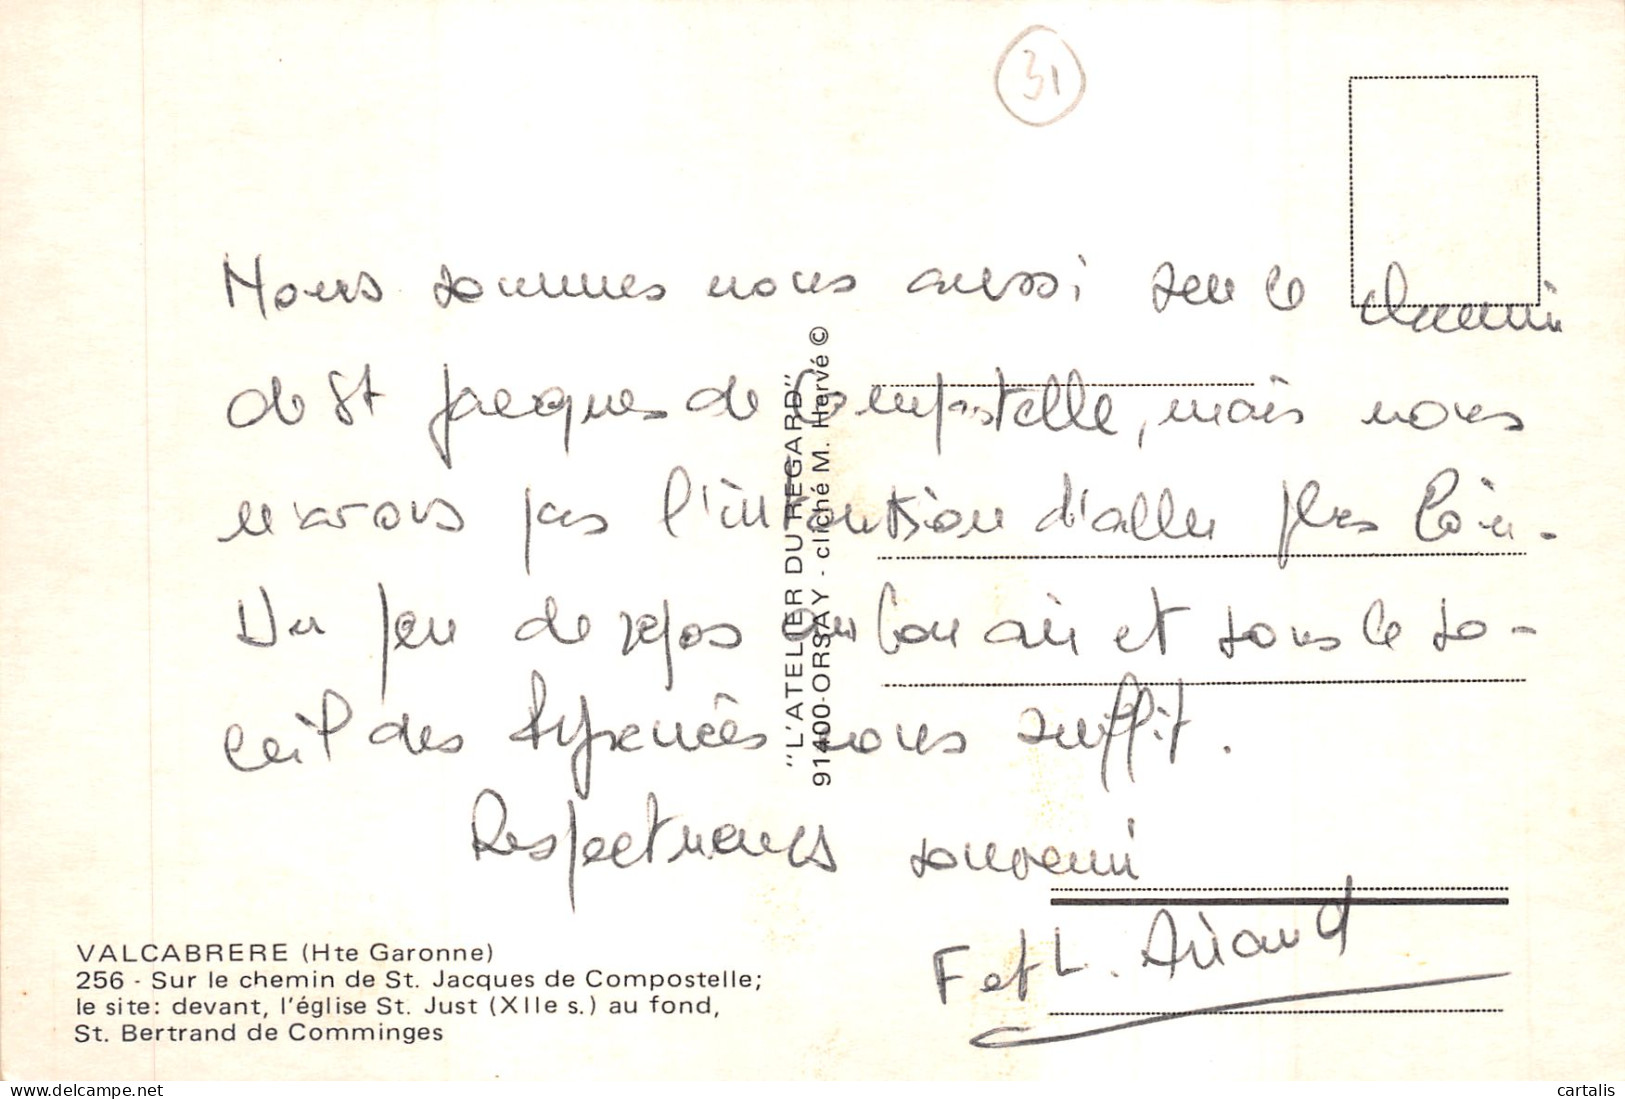 31
Nous sommes nous aussi sur le chemin
de St Jacques de Compostelle, mais nous
n'avons pas l'intention d'aller plus loin.
Un peu de repos au bon air et sous le so-
leil des Pyrénées nous suffit.
Respectueux souvenir
F et L.
"L'ATELIER DU REGARD"
91400-ORSAY - cliché M. Hervé ©
VALCABRERE (Hte Garonne)
256 - Sur le chemin de St. Jacques de Compostelle;
le site: devant, l'église St. Just (XIIe s.) au fond,
St. Bertrand de Comminges
cartalis